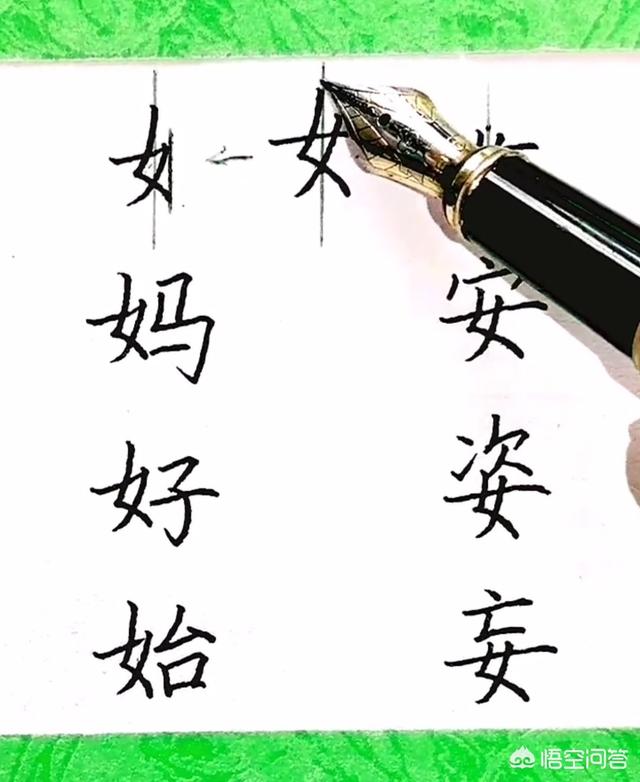 女 ← 女
妈 安
好 姿
始 妄
悟空问答